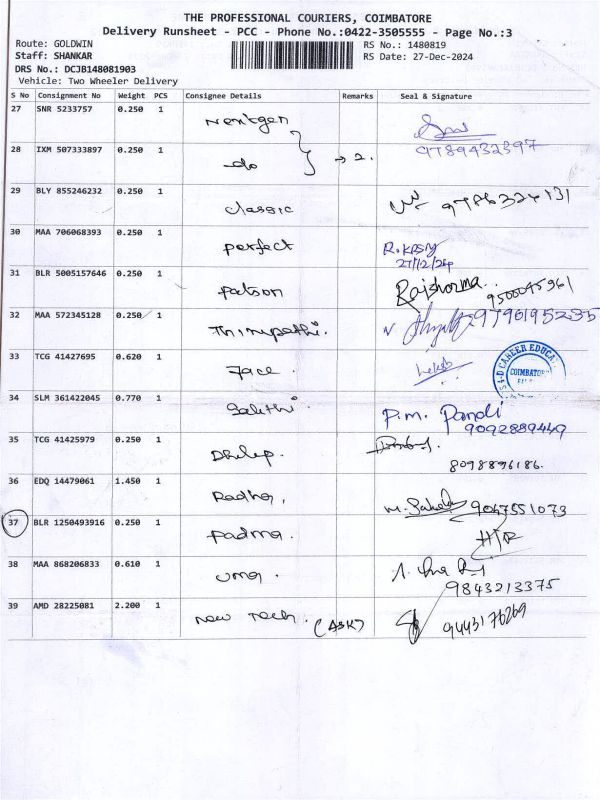 THE PROFESSIONAL COURIERS, COIMBATORE
Delivery Runsheet - PCC - Phone No.:0422-3505555 - Page No.:3
Route: GOLDWIN
RS No.: 1480819
Staff: SHANKAR
RS Date: 27-Dec-2024
DRS No.: DCJB148081903
Vehicle: Two Wheeler Delivery
S No Consignment No Weight PCS Consignee Details Remarks Seal & Signature
27 SNR 5233757 0.250 1 Nextgen
9789432397
28 IXM 507333897 0.250 1 do → 2.
29 BLY 855246232 0.250 1 classic
30 MAA 706068393 0.250 1 perfect
27/12/24
31 BLR 5005157646 0.250 1 patson Rajsharma
9500045961
32 MAA 572345128 0.250 1 Thirupathi. 9790195235
33 TCG 41427695 0.620 1 7ace
CAREER EDUCA
COIMBATORE
34 SLM 361422045 0.770 1 Sakthi P.M. Pandi
9092889449
35 TCG 41425979 0.250 1 Dhilep.
8098896186.
36 EDQ 14479061 1.450 1 Radha,
9047551073
37 BLR 1250493916 0.250 1 padma.
38 MAA 868206833 0.610 1 uma.
9843213375
39 AMD 28225081 2.200 1 New Tech. (ASK) 9443176269